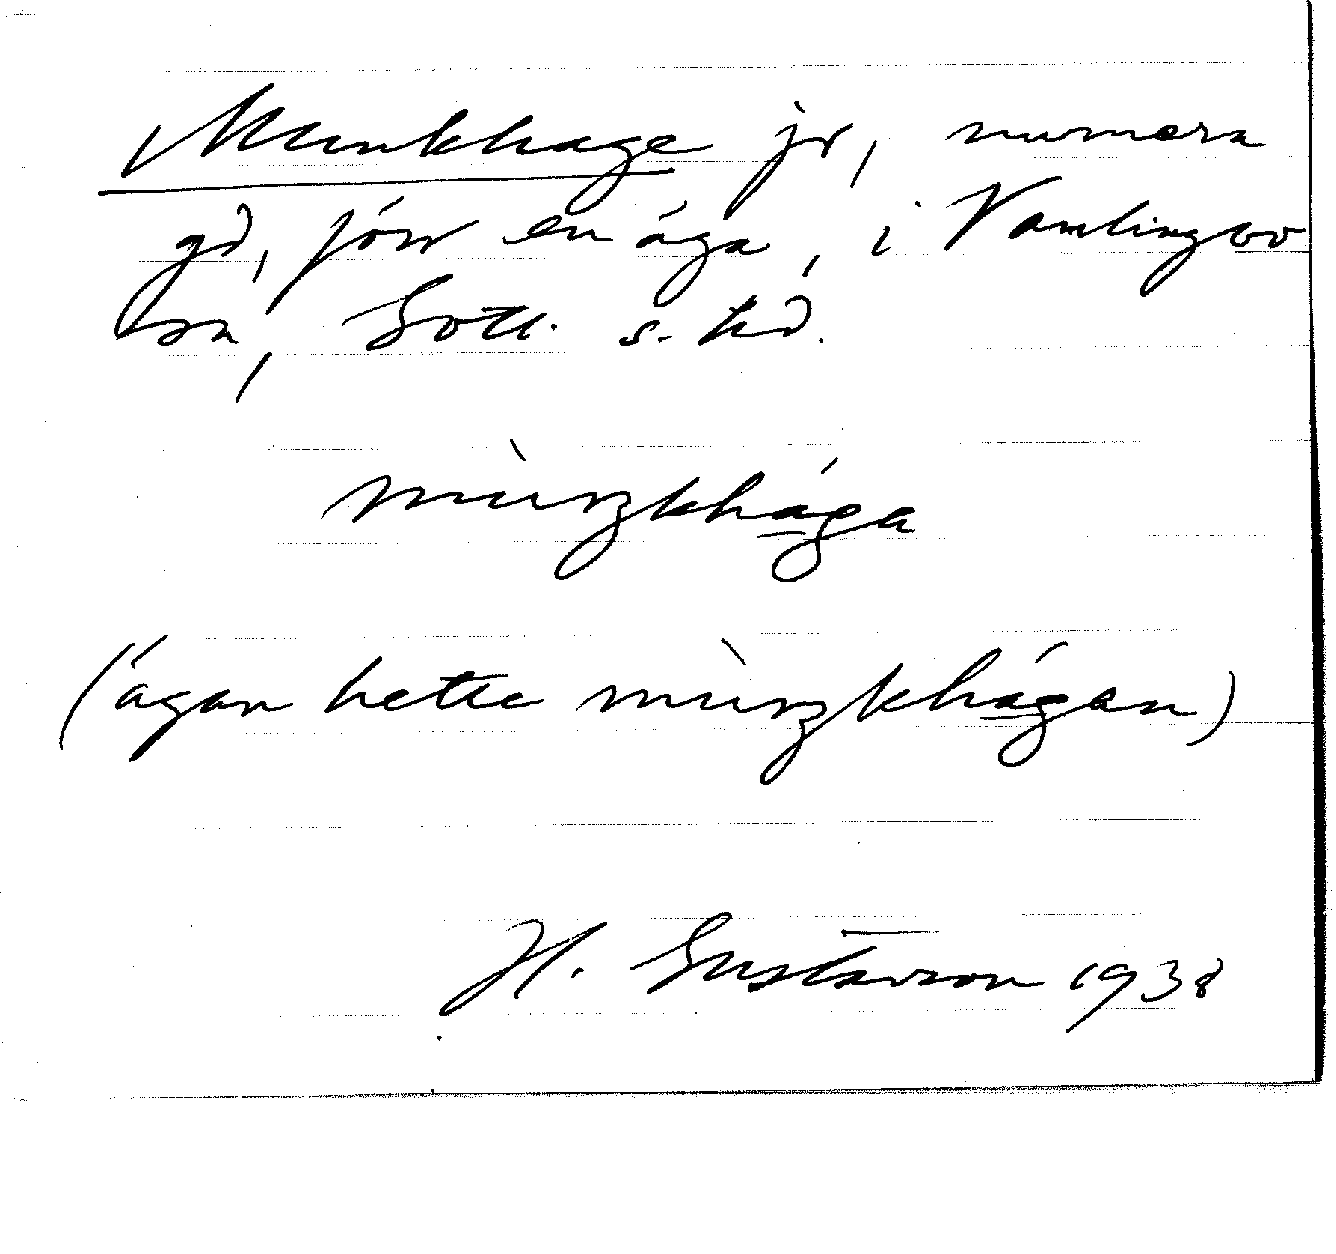 Munkhage jo, numera
gd, förr en äga, i Vamlingbo
sn, Gotl. s. hd.
mùŋkhága
(ágan hette mùŋkhágan)
H. Gustavson 1938